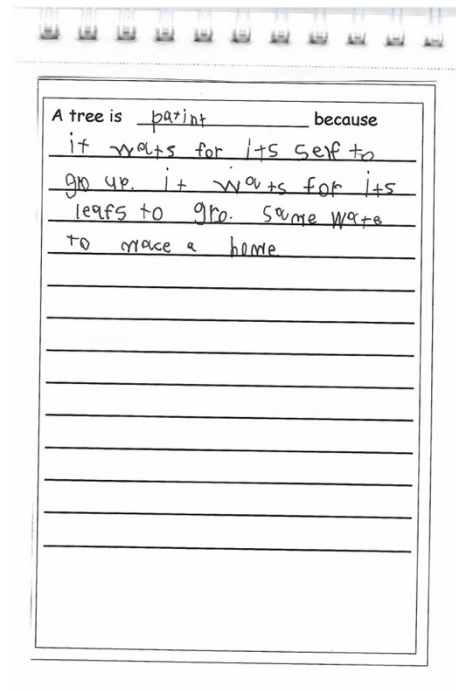 A tree is patint because
it wats for its self to
gro up. it wats for its
leafs to gro. same wate
to mace a home